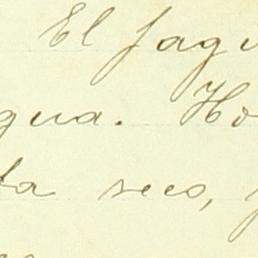 El jagü
gua. Ho
ta seco,